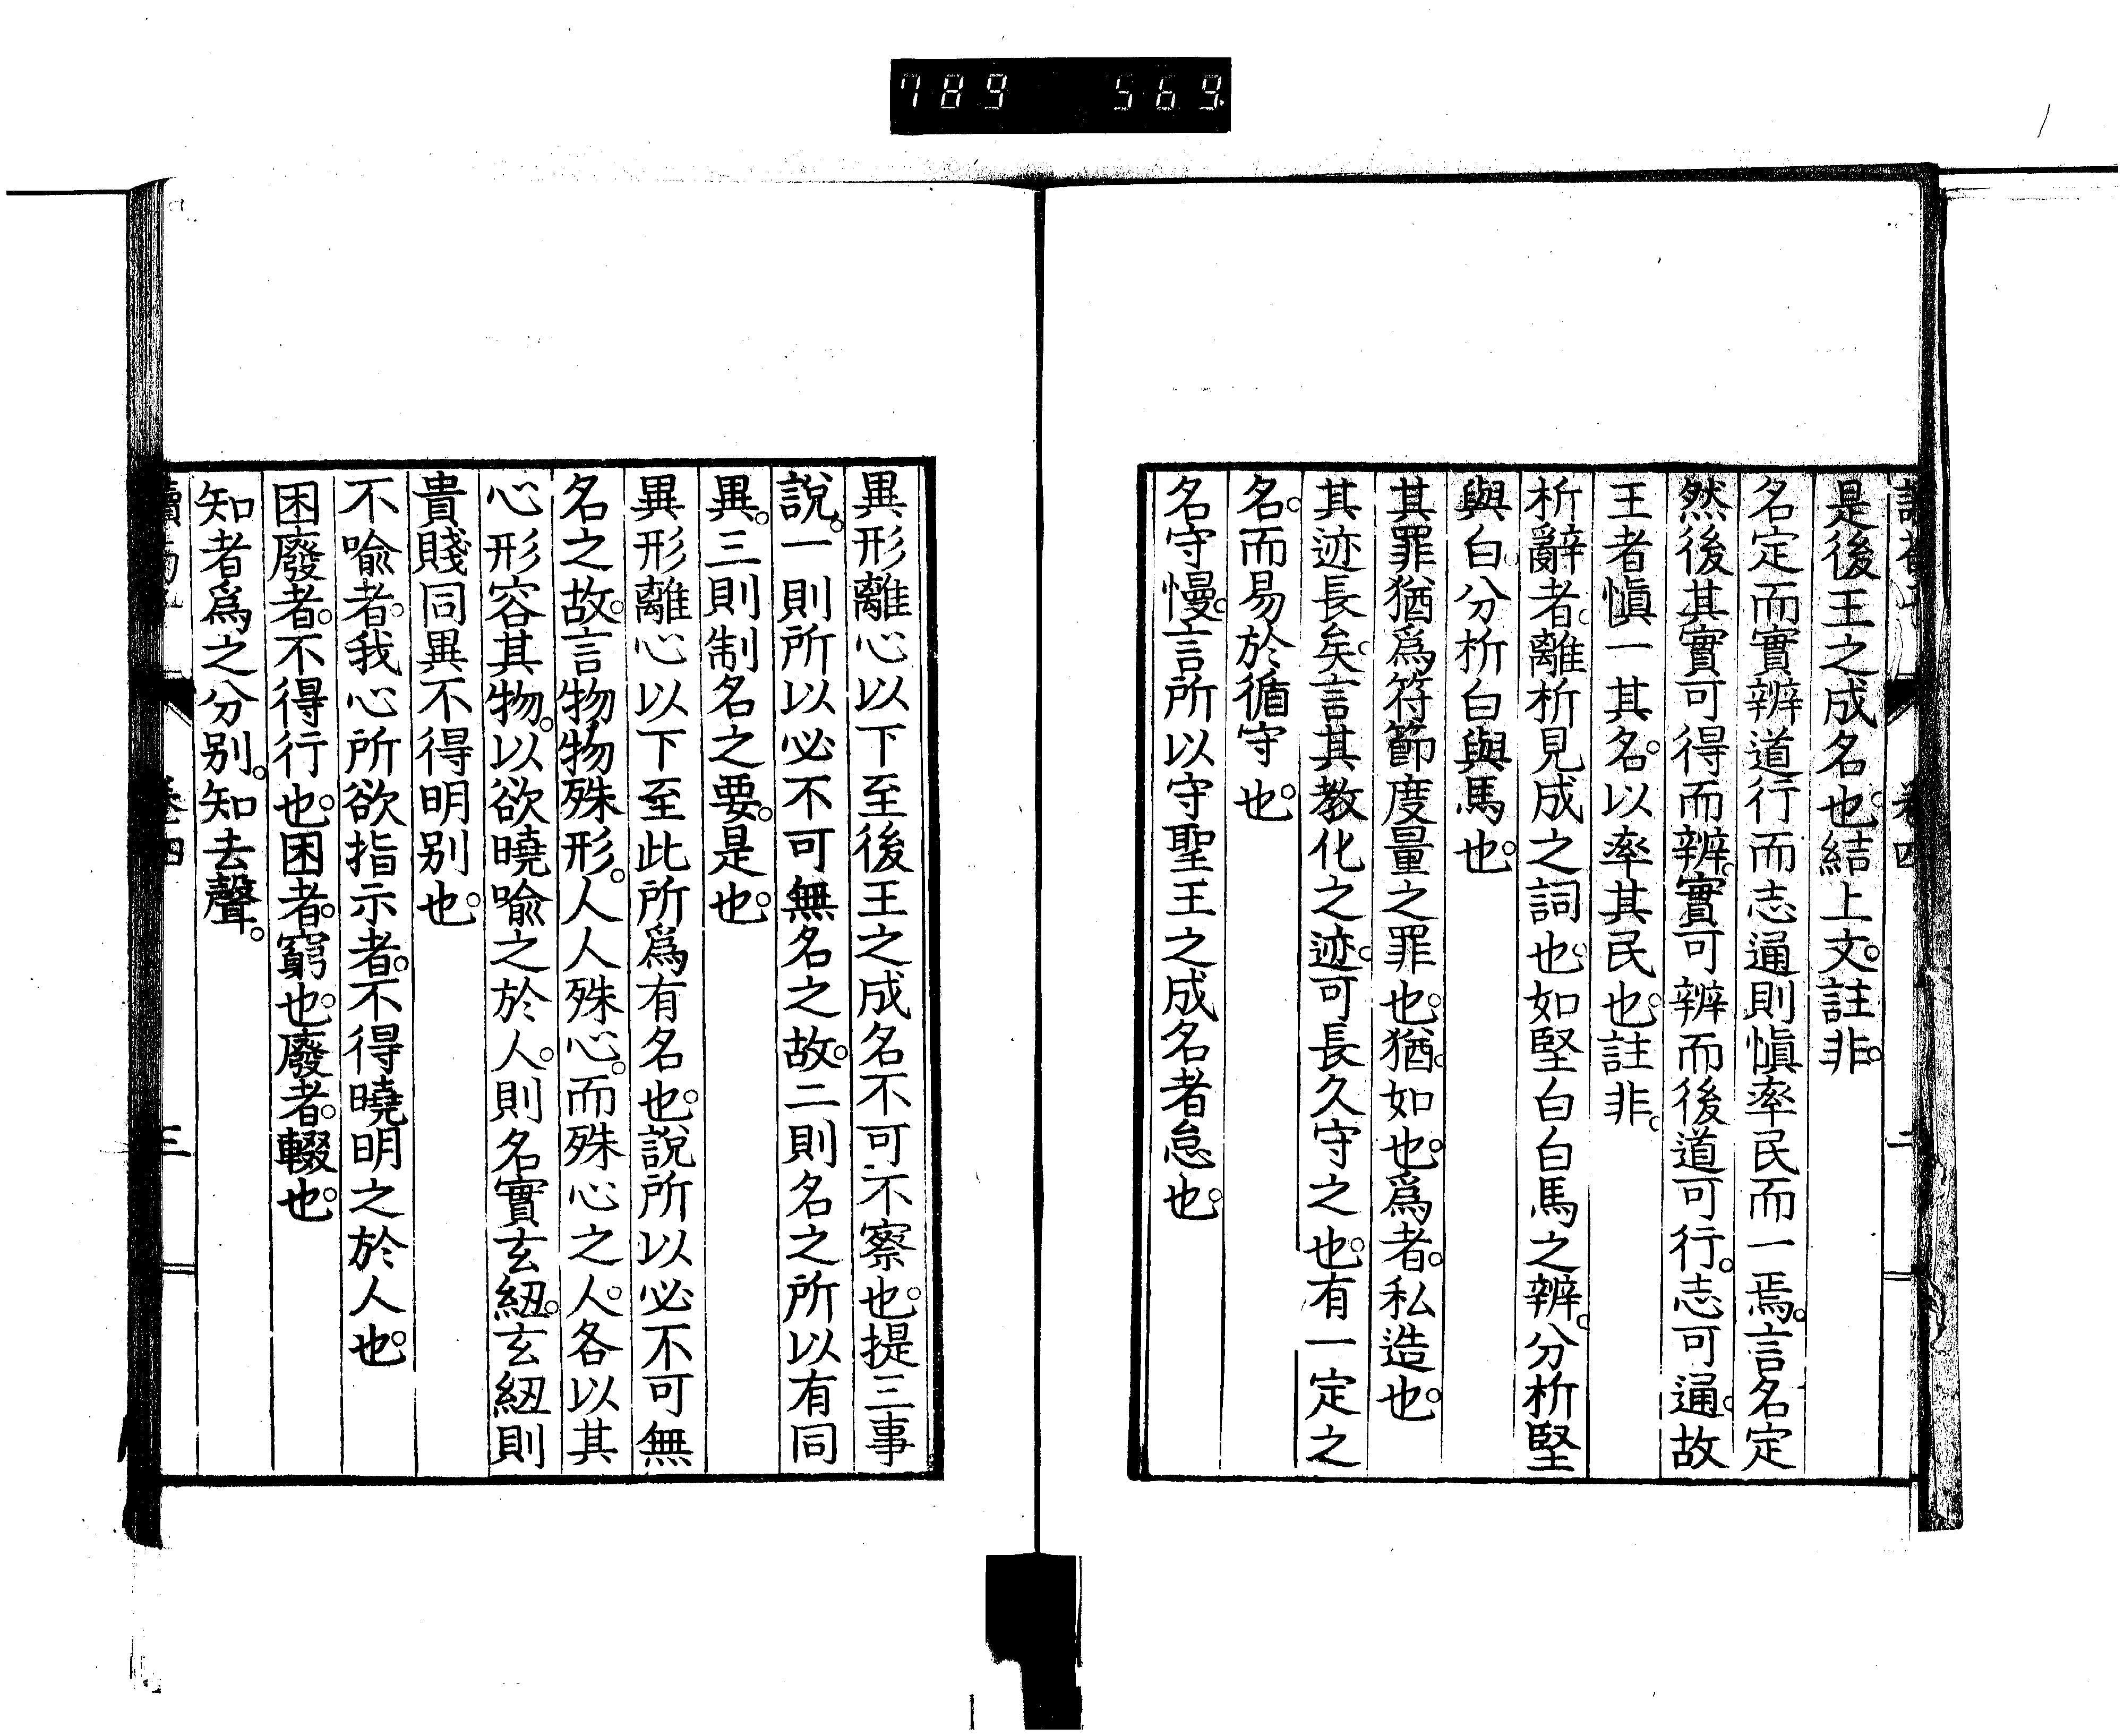 789 569
卷四 二
是後王之成名也。結上文。註非。
名定而實辨道行而志通則愼率民而一焉。言名定
然後其實可得而辨。實可辨而後道可行。志可通。故
王者愼一其名。以率其民也。註非。
析辭者。離析見成之詞也。如堅白白馬之辨。分析堅
與白分析白與馬也。
其罪猶爲符節度量之罪也。猶。如也。爲者。私造也。
其迹長矣。言其教化之迹。可長久守之也。有一定之
名。而易於循守也。
名守慢。言所以守聖王之成名者怠也。
異形離心以下至後王之成名不可不察也。提三事
說。一則所以必不可無名之故。二則名之所以有同
異。三則制名之要。是也。
異形離心以下至此所爲有名也。說所以必不可無
名之故。言物物殊形。人人殊心。而殊心之人。各以其
心形容其物。以欲曉喩之於人。則名實玄紐。玄紐則
貴賤同異不得明別也。
不喩者。我心所欲指示者。不得曉明之於人也。
困廢者。不得行也。困者。窮也。廢者。輟也。
知者爲之分別。知去聲。
卷四 三